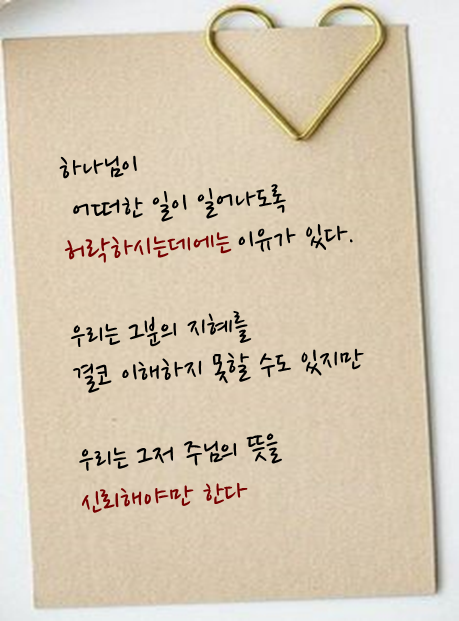 하나님이
어떠한 일이 일어나도록
허락하시는데에는 이유가 있다.
우리는 그분의 지혜를
결코 이해하지 못할 수도 있지만
우리는 그저 주님의 뜻을
신뢰해야만 한다